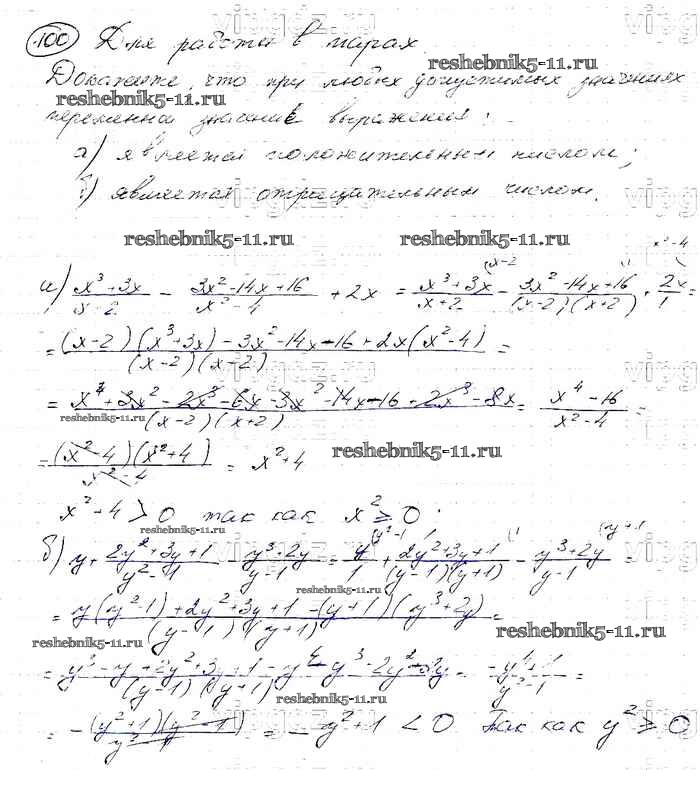 100 Для работы в парах.
reshebnik5-11.ru
Докажите, что при любых допустимых значениях
reshebnik5-11.ru
переменной значение выражения:
а) является положительным числом;
б) является отрицательным числом.
reshebnik5-11.ru reshebnik5-11.ru
а) (x³+3x)/(x+2) - (3x²-14x+16)/(x²-4) + 2x = (x³+3x)/(x+2) - (3x²-14x+16)/((x-2)(x+2)) + 2x/1 =
= ((x-2)(x³+3x)-3x²-14x-16+2x(x²-4))/((x-2)(x-2)) =
= (x⁴+3x²-2x³-6x-3x²-14x-16+2x³-8x)/((x-2)(x+2)) = (x⁴-16)/(x²-4) =
reshebnik5-11.ru
= ((x²-4)(x²+4))/(x²-4) = x²+4
reshebnik5-11.ru
x²+4>0 так как x²≥0.
reshebnik5-11.ru
б) y + (2y²+3y+1)/(y²-1) - (y³+2y)/(y-1) = y/1 + (2y²+3y+1)/((y-1)(y+1)) - (y³+2y)/(y-1) =
reshebnik5-11.ru
= (y(y²-1)+2y²+3y+1-(y+1)(y³+2y))/((y-1)(y+1)) =
reshebnik5-11.ru
reshebnik5-11.ru
= (y³-y+2y²+3y+1-y⁴-y³-2y²-2y)/((y-1)(y+1)) = (-y⁴+1)/(y²-1) =
reshebnik5-11.ru
= -((y²+1)(y²-1))/(y²-1) = -y²+1 < 0 Так как y²≥0